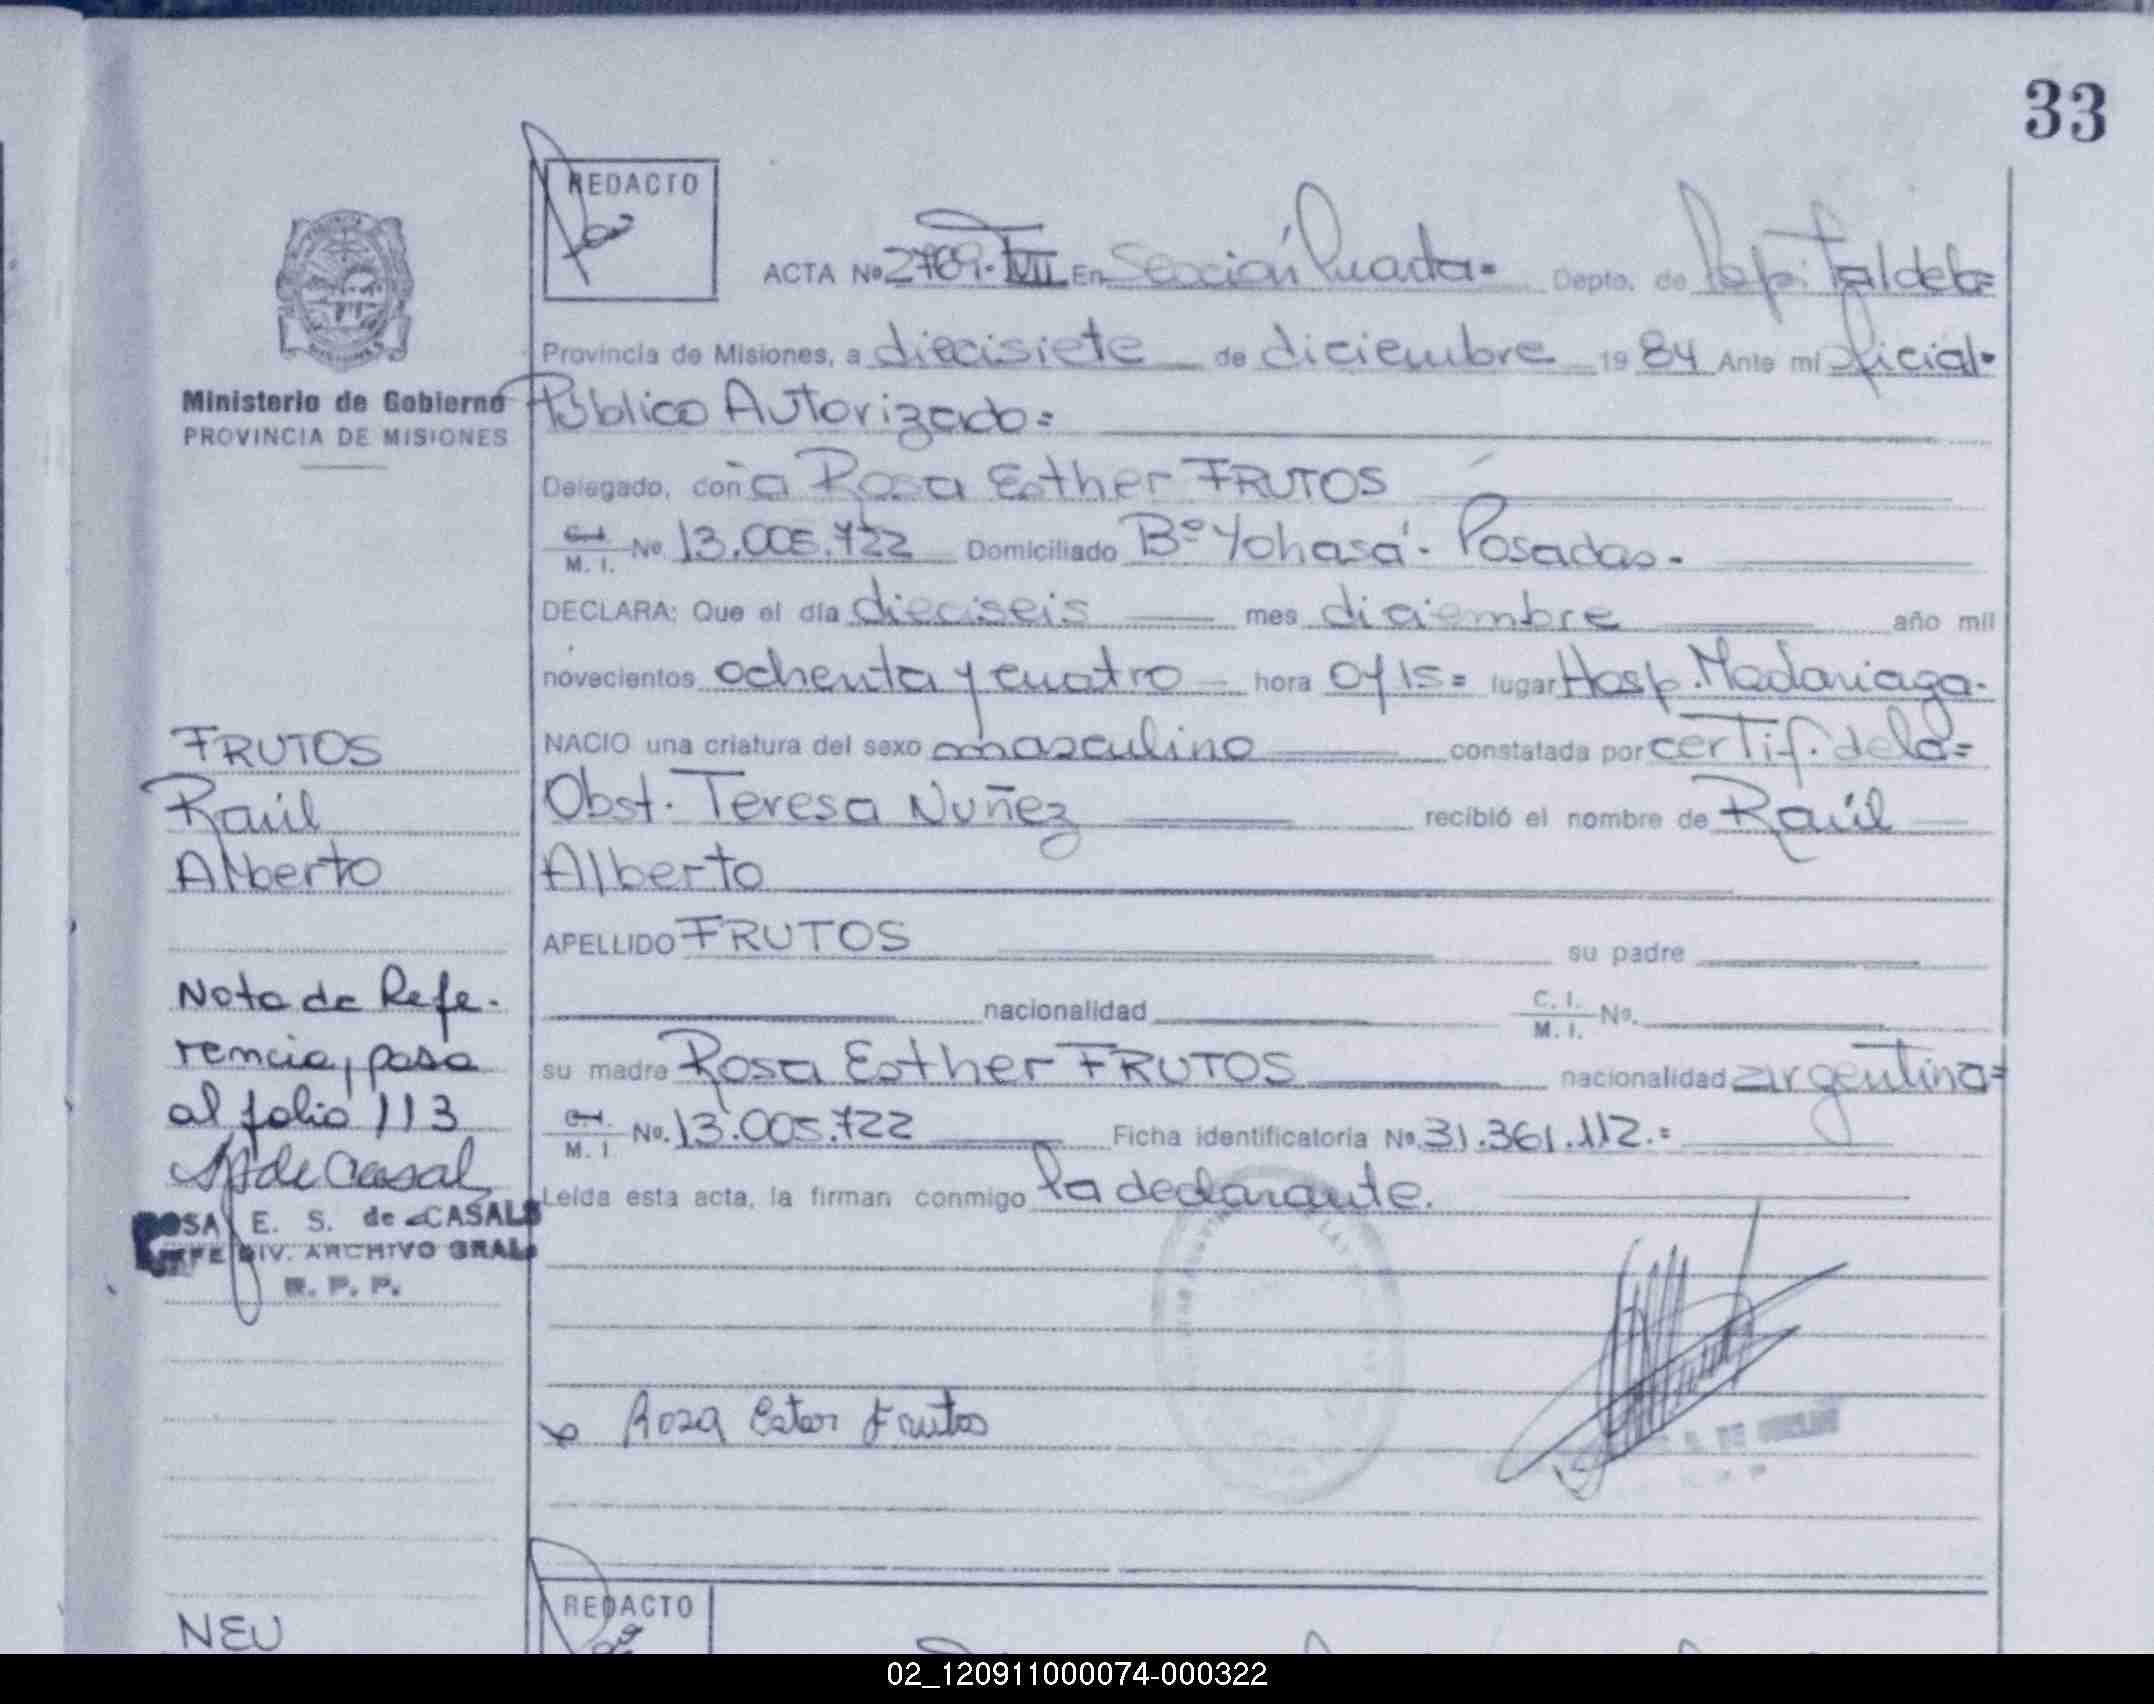 33
REDACTO
ACTA Nº 2769. TVII En Sección Cuarta= Depto. de Capital de la=
Provincia de Misiones, a diecisiete de diciembre 1984 Ante mí Oficial.
Ministerio de Gobierno
PROVINCIA DE MISIONES
Público Autorizado=
Delegado, doña Rosa Esther FRUTOS
C.I. M. I. Nº 13.005.722 Domiciliado Bº Yohasá. Posadas.
DECLARA: Que el día dieciseis mes diciembre año mil
novecientos ochenta y cuatro hora 0y15= lugar Hosp. Madariaga.
NACIO una criatura del sexo masculino constatada por certif. de la=
Obst. Teresa Nuñez recibió el nombre de Raúl
Alberto
APELLIDO FRUTOS su padre
nacionalidad C. I. M. I. Nº.
su madre Rosa Esther FRUTOS nacionalidad argentina=
C.I. M. I. Nº. 13.005.722 Ficha identificatoria Nº 31.361.112.=
Leída esta acta, la firman conmigo la declarante.
Rosa Ester Frutos
FRUTOS
Raúl
Alberto
Nota de Refe-
rencia, pasa
al folio 113
de Casal
ROSA E. S. de CASALS
JEFE DIV. ARCHIVO GRAL.
R. P. P.
NEU
REDACTO
02_120911000074-000322